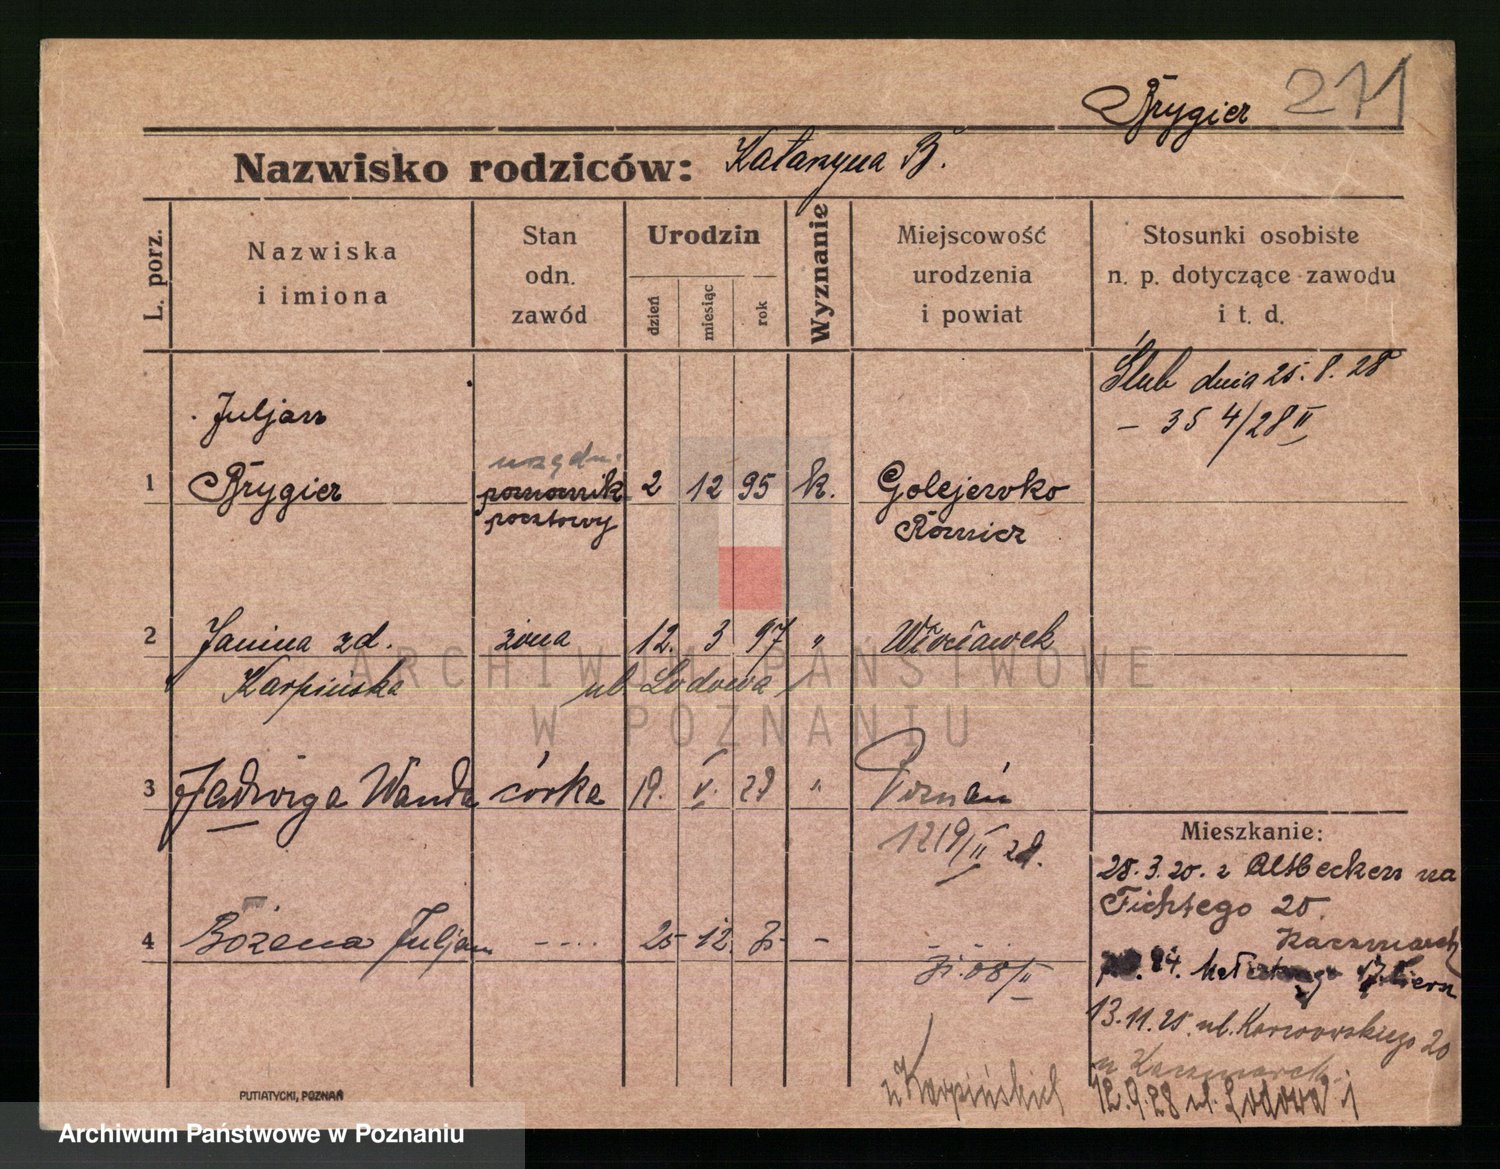 Brygier 271
Nazwisko rodziców: Katarzyna B.
L. porz.
Nazwiska i imiona
Stan odn. zawód
Urodzin
dzień
miesiąc
rok
Wyznanie
Miejscowość urodzenia i powiat
Stosunki osobiste n. p. dotyczące zawodu i t. d.
Ślub dnia 25. 8. 28
- 354/28 II
Juljan
urzędn.
1 Brygier pomocnik 2 12 95 k. Golejewko
pocztowy
2 Janina zd. żona 12. 3 97 " Włocławek
Karpińska ul Lodowa
3 Jadwiga Wanda córka 19. V. " Poznań
1219/II
Mieszkanie:
28. 3. 20. z na
Fichtego 20.
Kaczmarek
4 Bożena Juljan - .... 25 12. -
08/II
13. 11. 25. ul. 20
u Kaczmarek
u Karpińskich 12. 9. 28 ul. Lodowa
PUTIATYCKI, POZNAŃ
ARCHIWUM PAŃSTWOWE
W POZNANIU
Archiwum Państwowe w Poznaniu